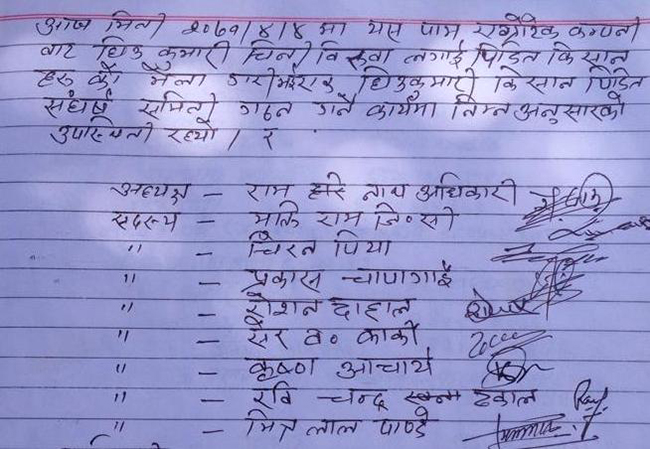 आज मिति २०७१/४/४ मा यस पाम एग्रोटिक कम्पनी
बाट घिउ कुमारी चिनी बिरुवा लगाई पिडित किसान
हरु को भेला गरी घिउकुमारी किसान पिडित
संघर्ष समिती गठन गर्ने कार्यमा निम्न अनुसारको
उपस्थिती रह्यो ।
अध्यक्ष - राम हरि नाथ अधिकारी
सदस्य - भक्ति राम जि॰सी
" - चिरन पिया
" - प्रकास चापागाई
" - रोशन दाहाल
" - सेर ब॰ कार्की
" - कृष्ण आचार्य
" - रवि चन्द्र ढकाल
" - मित्र लाल पाण्डे